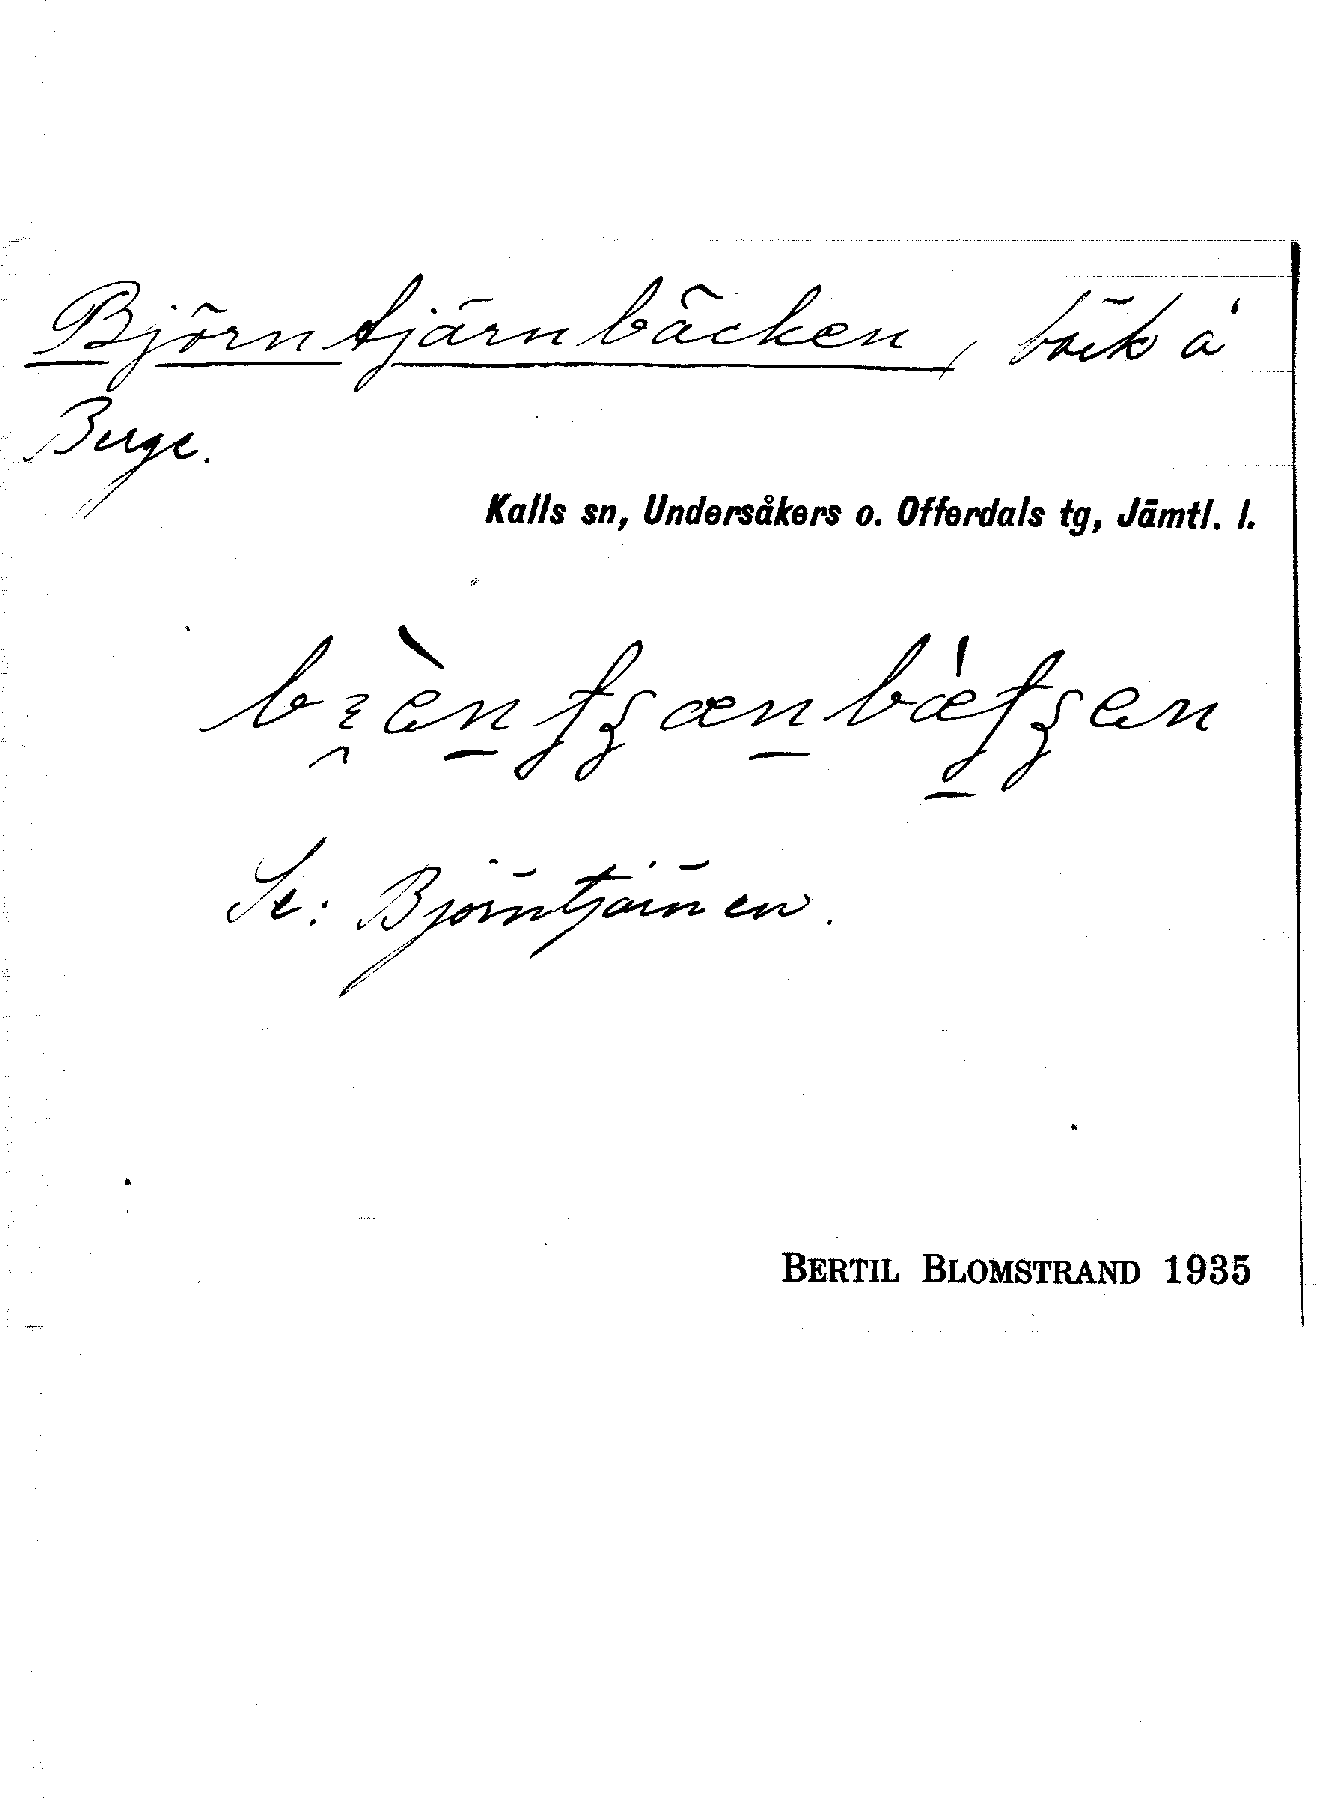 Björntjärnbäcken, bäck å
Berge.
Kalls sn, Undersåkers o. Offerdals tg, Jämtl. l.
Se: Björntjärnen.
BERTIL BLOMSTRAND 1935